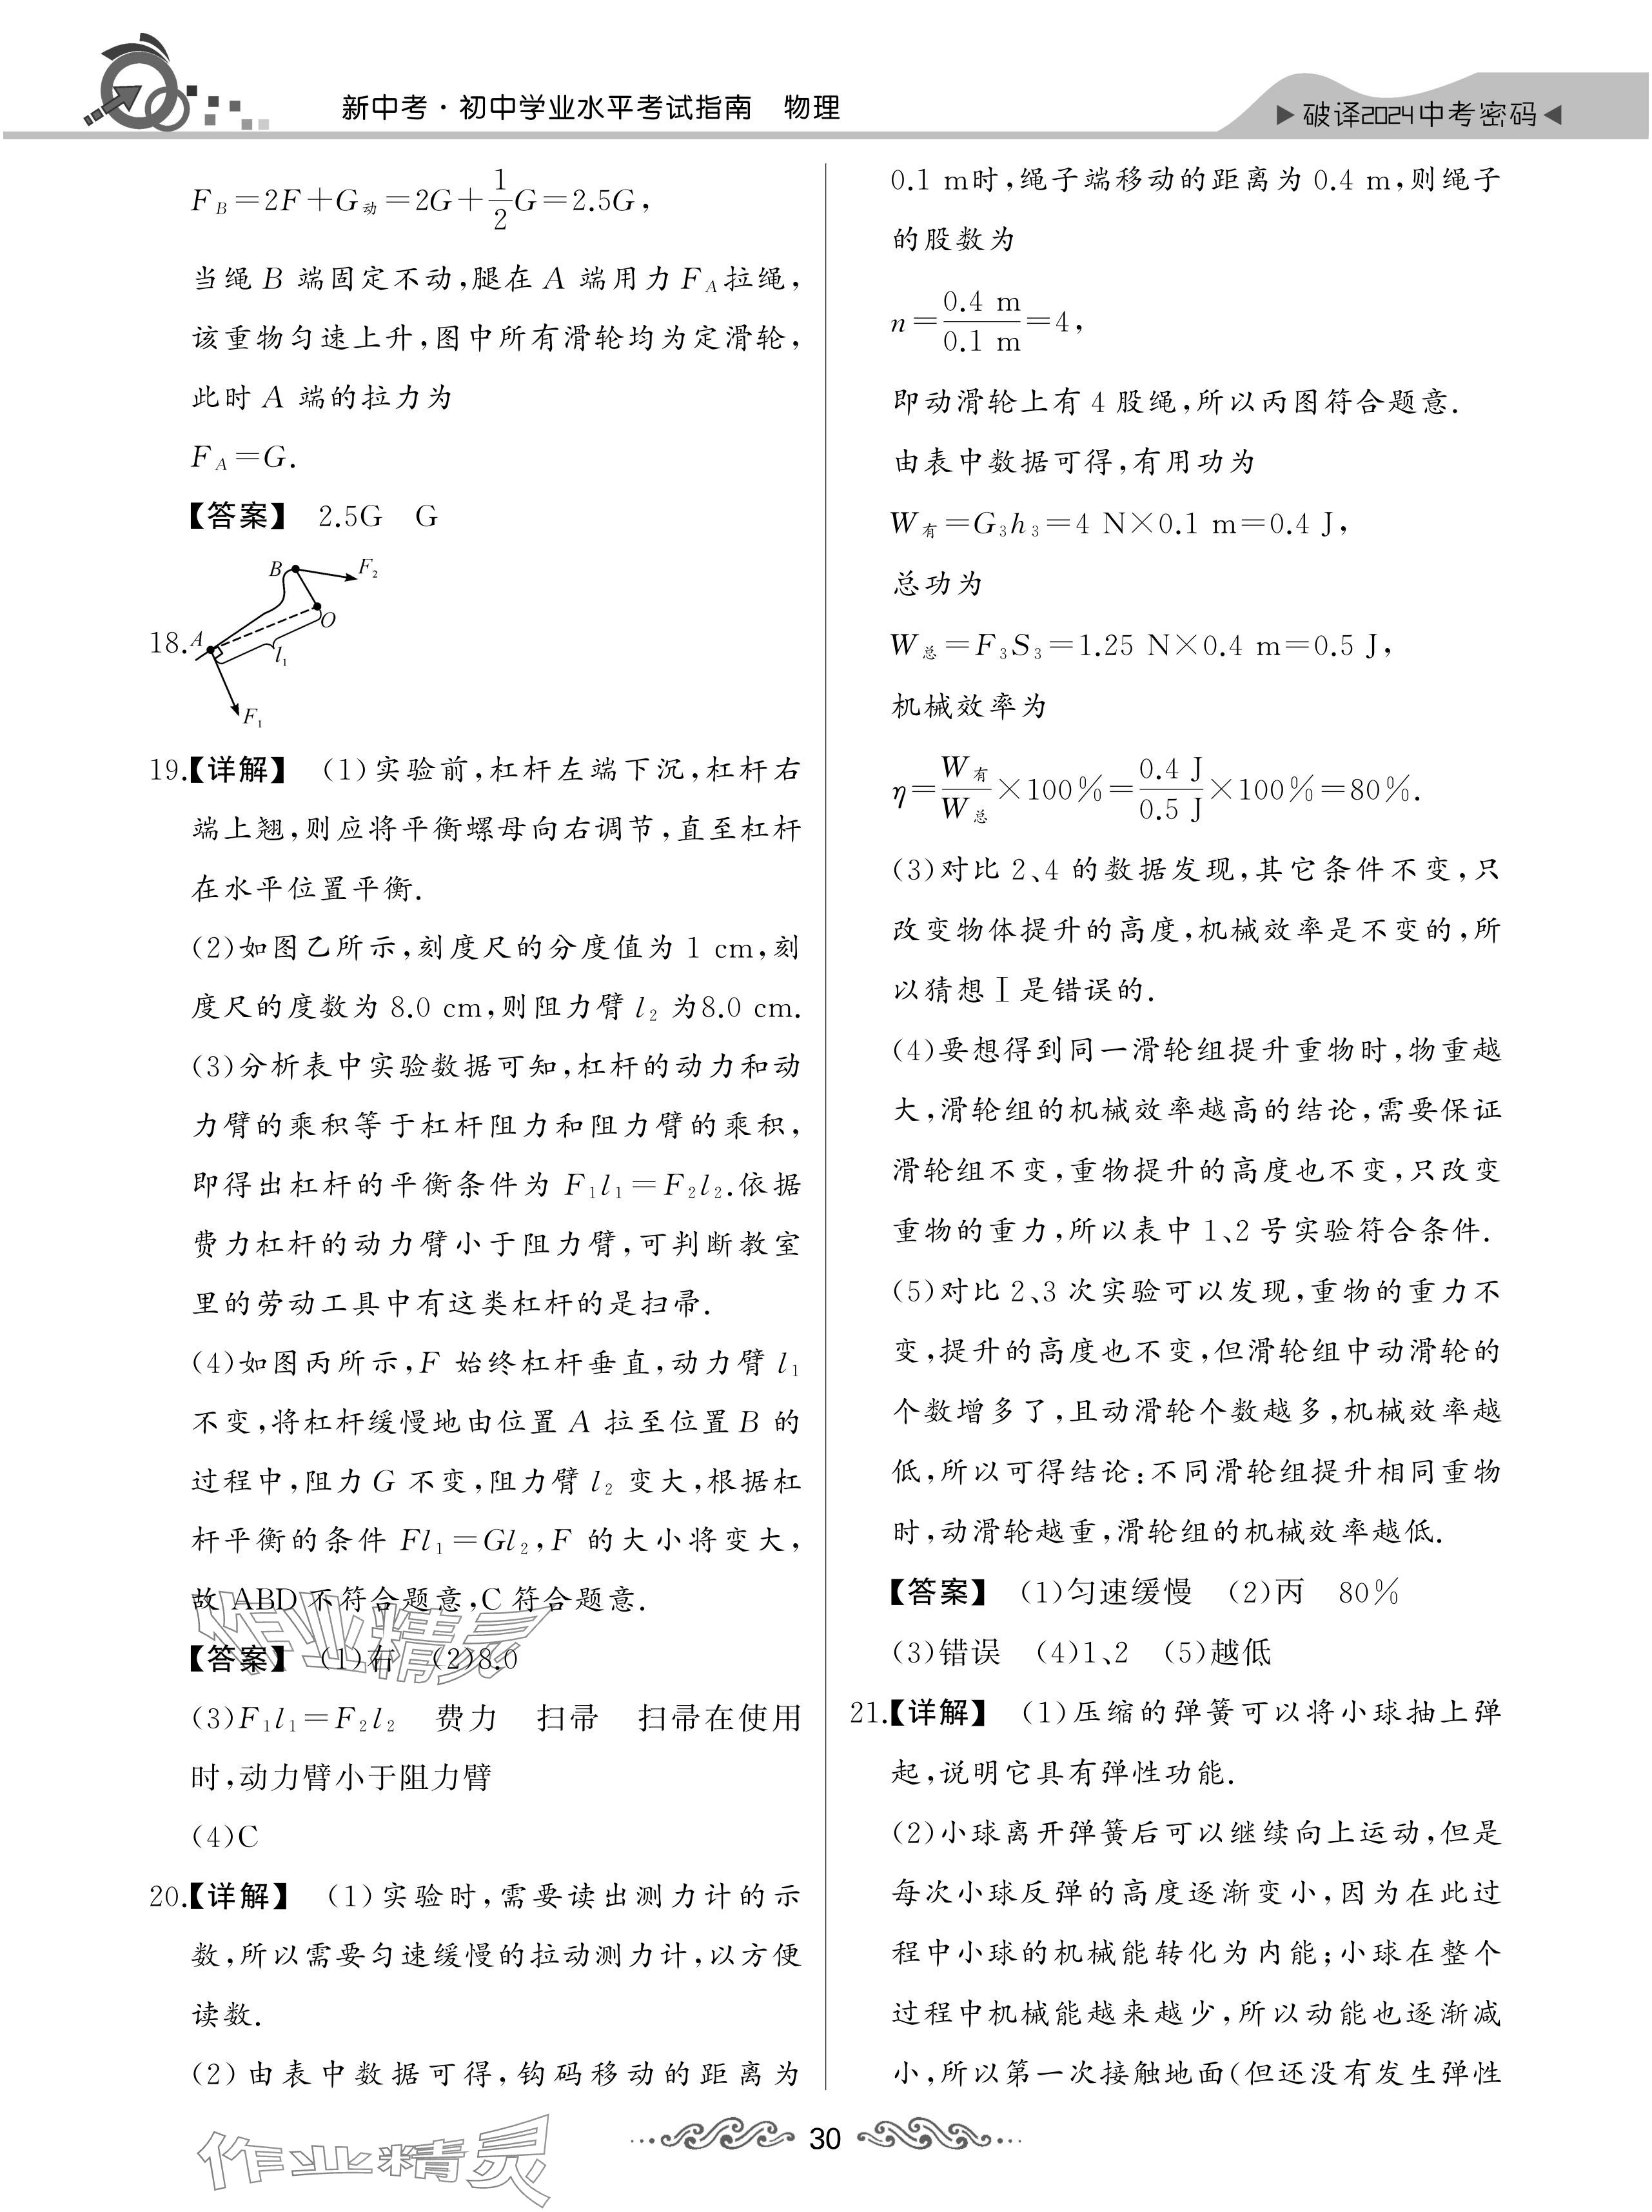 新中考·初中学业水平考试指南　物理
▶破译2024中考密码◀
F_B=2F+G_动=2G+\frac{1}{2}G=2.5G,
当绳 B 端固定不动,腿在 A 端用力 F_A拉绳,
该重物匀速上升,图中所有滑轮均为定滑轮,
此时 A 端的拉力为
F_A=G.
【答案】　2.5G　G
B　F_2
O
18.　A
l_1
F_1
19.【详解】　(1)实验前,杠杆左端下沉,杠杆右
端上翘,则应将平衡螺母向右调节,直至杠杆
在水平位置平衡.
(2)如图乙所示,刻度尺的分度值为 1 cm,刻
度尺的度数为 8.0 cm,则阻力臂 l_2 为8.0 cm.
(3)分析表中实验数据可知,杠杆的动力和动
力臂的乘积等于杠杆阻力和阻力臂的乘积,
即得出杠杆的平衡条件为 F_1l_1=F_2l_2.依据
费力杠杆的动力臂小于阻力臂,可判断教室
里的劳动工具中有这类杠杆的是扫帚.
(4)如图丙所示,F 始终杠杆垂直,动力臂 l_1
不变,将杠杆缓慢地由位置 A 拉至位置 B 的
过程中,阻力 G 不变,阻力臂 l_2 变大,根据杠
杆平衡的条件 Fl_1=Gl_2,F 的大小将变大,
故 ABD 不符合题意,C 符合题意.
【答案】　(1)右　(2)8.0
(3)F_1l_1=F_2l_2　费力　扫帚　扫帚在使用
时,动力臂小于阻力臂
(4)C
20.【详解】　(1)实验时,需要读出测力计的示
数,所以需要匀速缓慢的拉动测力计,以方便
读数.
(2)由表中数据可得,钩码移动的距离为
0.1 m时,绳子端移动的距离为 0.4 m,则绳子
的股数为
n=\frac{0.4 m}{0.1 m}=4,
即动滑轮上有 4 股绳,所以丙图符合题意.
由表中数据可得,有用功为
W_有=G_3h_3=4 N×0.1 m=0.4 J,
总功为
W_总=F_3S_3=1.25 N×0.4 m=0.5 J,
机械效率为
η=\frac{W_有}{W_总}×100%=\frac{0.4 J}{0.5 J}×100%=80%.
(3)对比 2、4 的数据发现,其它条件不变,只
改变物体提升的高度,机械效率是不变的,所
以猜想Ⅰ是错误的.
(4)要想得到同一滑轮组提升重物时,物重越
大,滑轮组的机械效率越高的结论,需要保证
滑轮组不变,重物提升的高度也不变,只改变
重物的重力,所以表中 1、2 号实验符合条件.
(5)对比 2、3 次实验可以发现,重物的重力不
变,提升的高度也不变,但滑轮组中动滑轮的
个数增多了,且动滑轮个数越多,机械效率越
低,所以可得结论:不同滑轮组提升相同重物
时,动滑轮越重,滑轮组的机械效率越低.
【答案】　(1)匀速缓慢　(2)丙　80%
(3)错误　(4)1、2　(5)越低
21.【详解】　(1)压缩的弹簧可以将小球抽上弹
起,说明它具有弹性功能.
(2)小球离开弹簧后可以继续向上运动,但是
每次小球反弹的高度逐渐变小,因为在此过
程中小球的机械能转化为内能;小球在整个
过程中机械能越来越少,所以动能也逐渐减
小,所以第一次接触地面(但还没有发生弹性
作业精灵
作业精灵
30